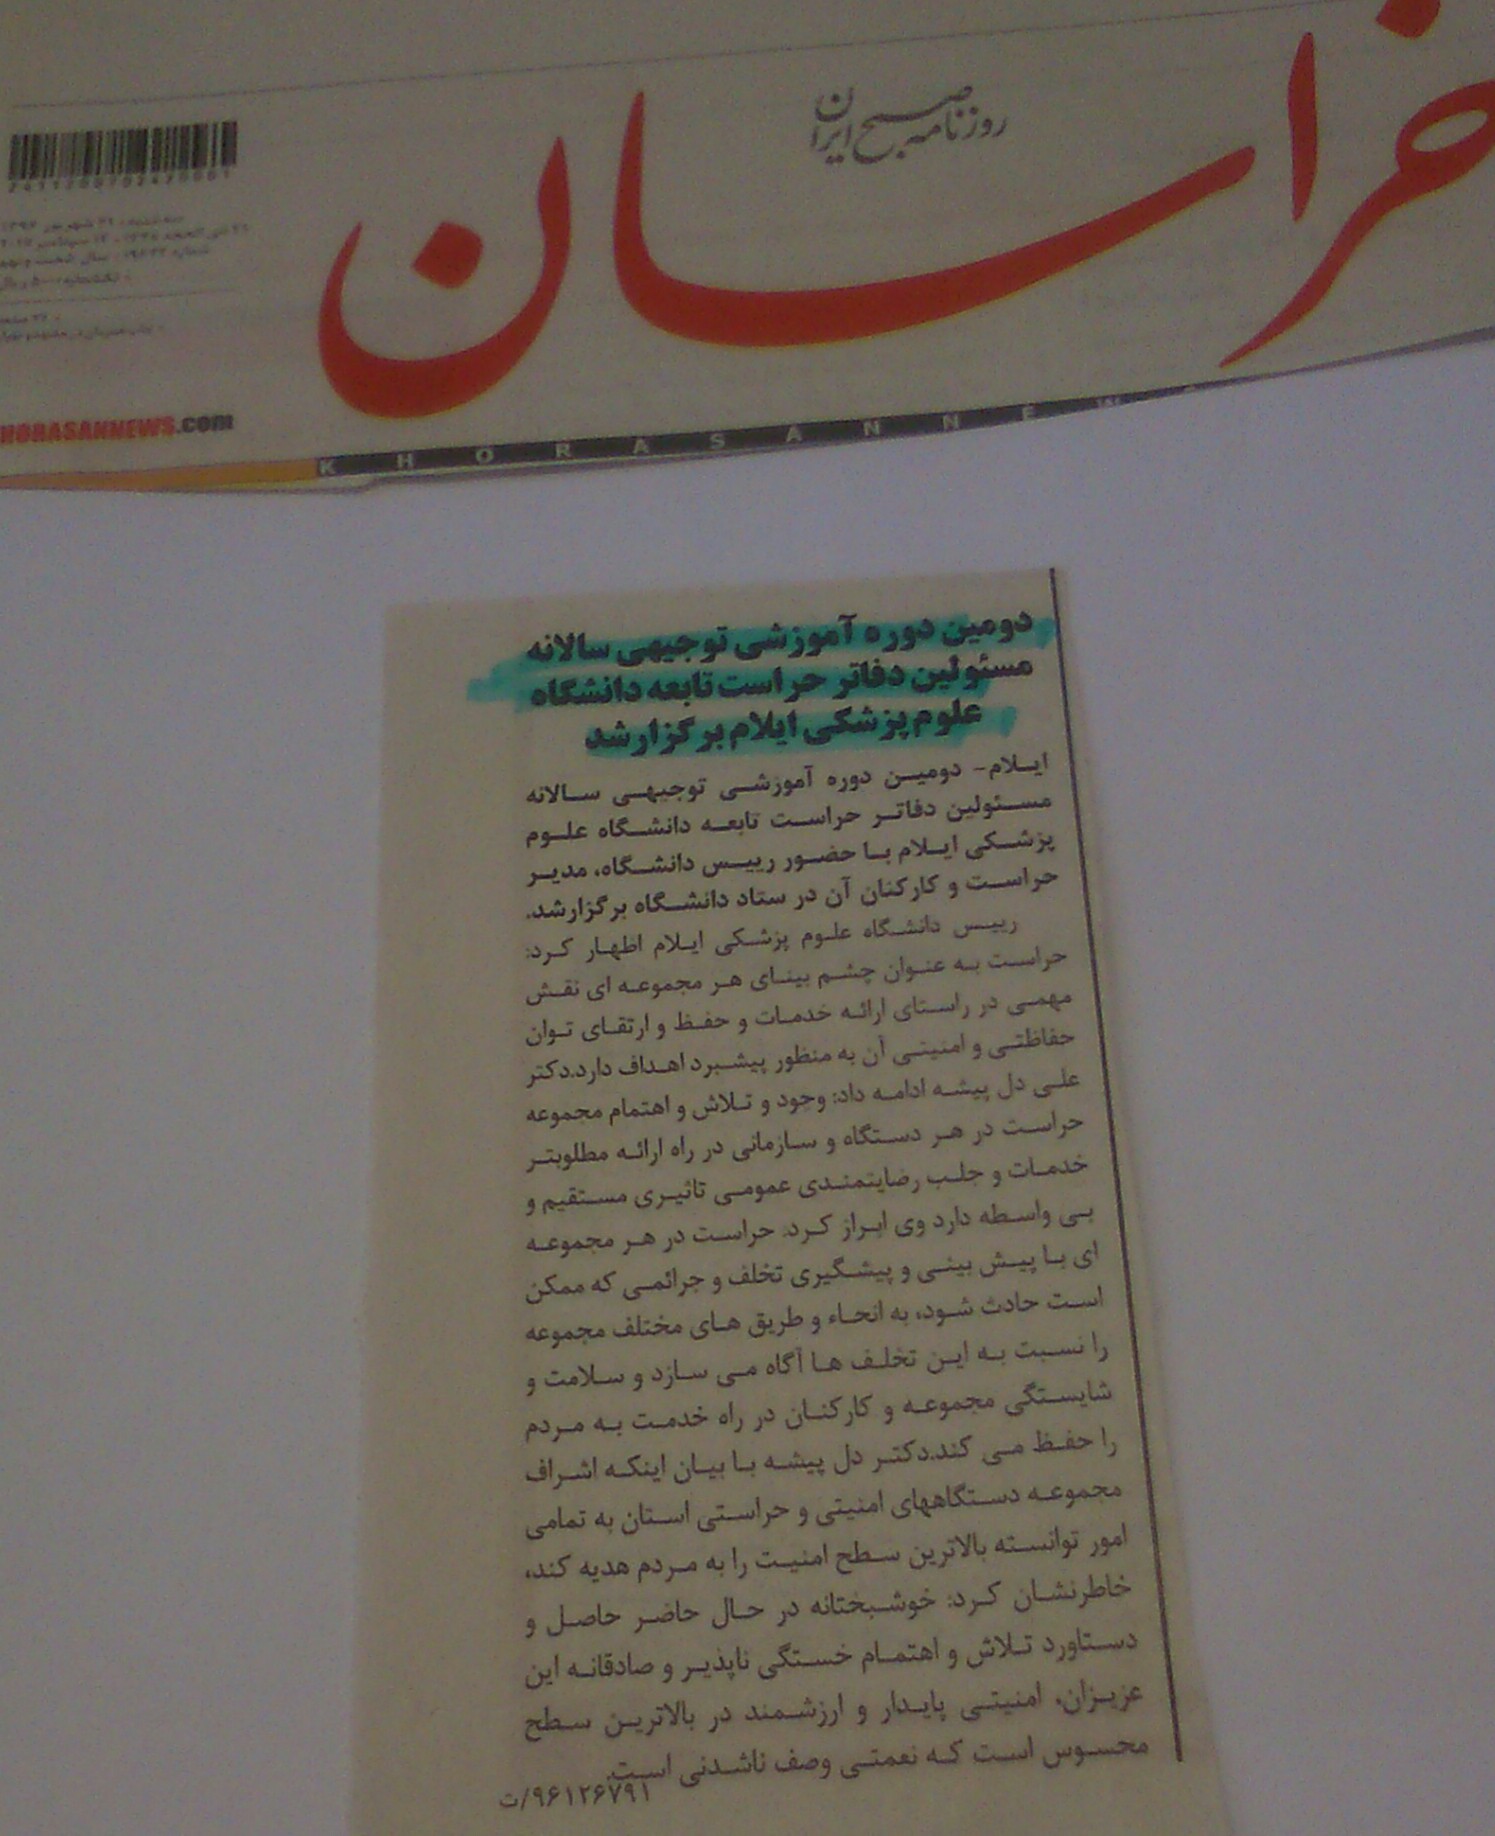 خراسان
روزنامه صبح ایران
HORASANNEWS.com
KHORASANNEWS
دومین دوره آموزشی توجیهی سالانه
مسئولین دفاتر حراست تابعه دانشگاه
علوم پزشکی ایلام برگزار شد
ایلام- دومین دوره آموزشی توجیهی سالانه
مسئولین دفاتر حراست تابعه دانشگاه علوم
پزشکی ایلام با حضور رییس دانشگاه، مدیر
حراست و کارکنان آن در ستاد دانشگاه برگزارشد.
رییس دانشگاه علوم پزشکی ایلام اظهار کرد:
حراست به عنوان چشم بینای هر مجموعه ای نقش
مهمی در راستای ارائه خدمات و حفظ و ارتقای توان
حفاظتی و امنیتی آن به منظور پیشبرد اهداف دارد.دکتر
علی دل پیشه ادامه داد: وجود و تلاش و اهتمام مجموعه
حراست در هر دستگاه و سازمانی در راه ارائه مطلوبتر
خدمات و جلب رضایتمندی عمومی تاثیری مستقیم و
بی واسطه دارد وی ابراز کرد: حراست در هر مجموعه
ای با پیش بینی و پیشگیری تخلف و جرائمی که ممکن
است حادث شود، به انحاء و طریق های مختلف مجموعه
را نسبت به این تخلف ها آگاه می سازد و سلامت و
شایستگی مجموعه و کارکنان در راه خدمت به مردم
را حفظ می کند.دکتر دل پیشه با بیان اینکه اشراف
مجموعه دستگاههای امنیتی و حراستی استان به تمامی
امور توانسته بالاترین سطح امنیت را به مردم هدیه کند،
خاطرنشان کرد: خوشبختانه در حال حاضر حاصل و
دستاورد تلاش و اهتمام خستگی ناپذیر و صادقانه این
عزیزان، امنیتی پایدار و ارزشمند در بالاترین سطح
محسوس است که نعمتی وصف ناشدنی است.
۹۶۱۲۶۷۹۱/ت